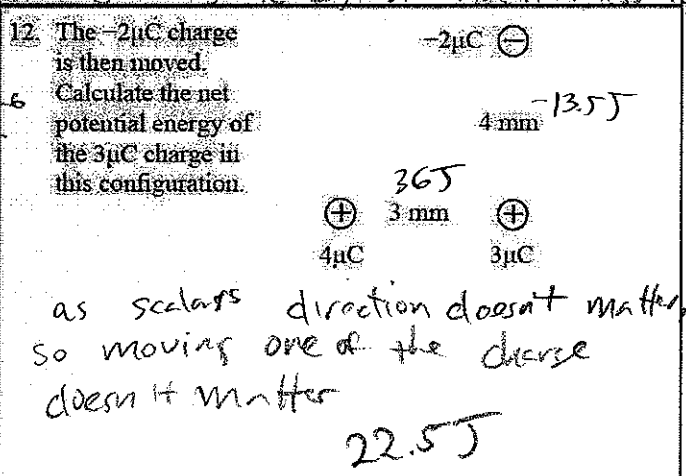 12. The -2µC charge
is then moved.
Calculate the net
potential energy of
the 3µC charge in
this configuration.
-2µC
4 mm
-13.5J
36J
3 mm
4µC
3µC
as scalars direction doesn't matter,
so moving one of the charge
doesn't matter
22.5J